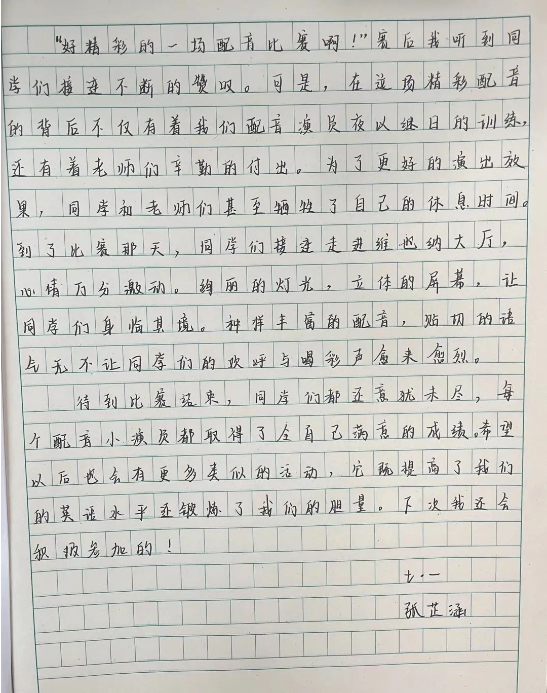 “好精彩的一场配音比赛啊!”赛后我听到同
学们接连不断的赞叹。可是,在这场精彩配音
的背后不仅有着我们配音演员夜以继日的训练,
还有着老师们辛勤的付出。为了更好的演出放
果,同学和老师们甚至牺牲了自己的休息时间。
到了比赛那天,同学们接连走进维也纳大厅,
心情万分激动。绚丽的灯光,立体的屏幕,让
同学们身临其境。种样丰富的配音,贴切的语
气无不让同学们的欢呼与喝彩声愈来愈烈。
待到比赛结束,同学们都还意犹未尽,每
个配音小演员都取得了令自己满意的成绩。希望
以后也会有更多类似的活动,它既提高了我们
的英语水平还锻炼了我们的胆量。下次我还会
积极参加的!
七·一
张芷涵